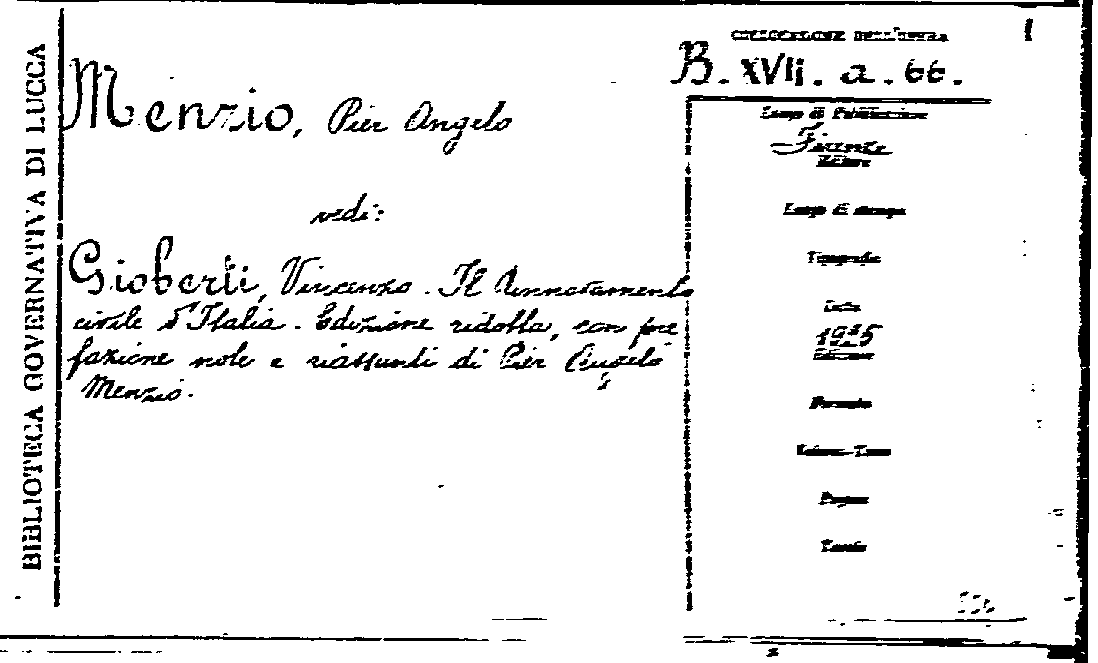 BIBLIOTECA GOVERNATIVA DI LUCCA
Menzio, Pier Angelo
vedi:
Gioberti, Vincenzo. Il Rinnovamento
civile d'Italia. Edizione ridotta, con pre
fazione note e riassunti di Pier Angelo
Menzio.
COLLOCAZIONE DELL'OPERA
B. XVII. a. 66.
Luogo di Pubblicazione
Firenze
Editore
Luogo di stampa
Tipografia
Data
Edizione
Formato
Volume-Tomo
Pagine
Tavole